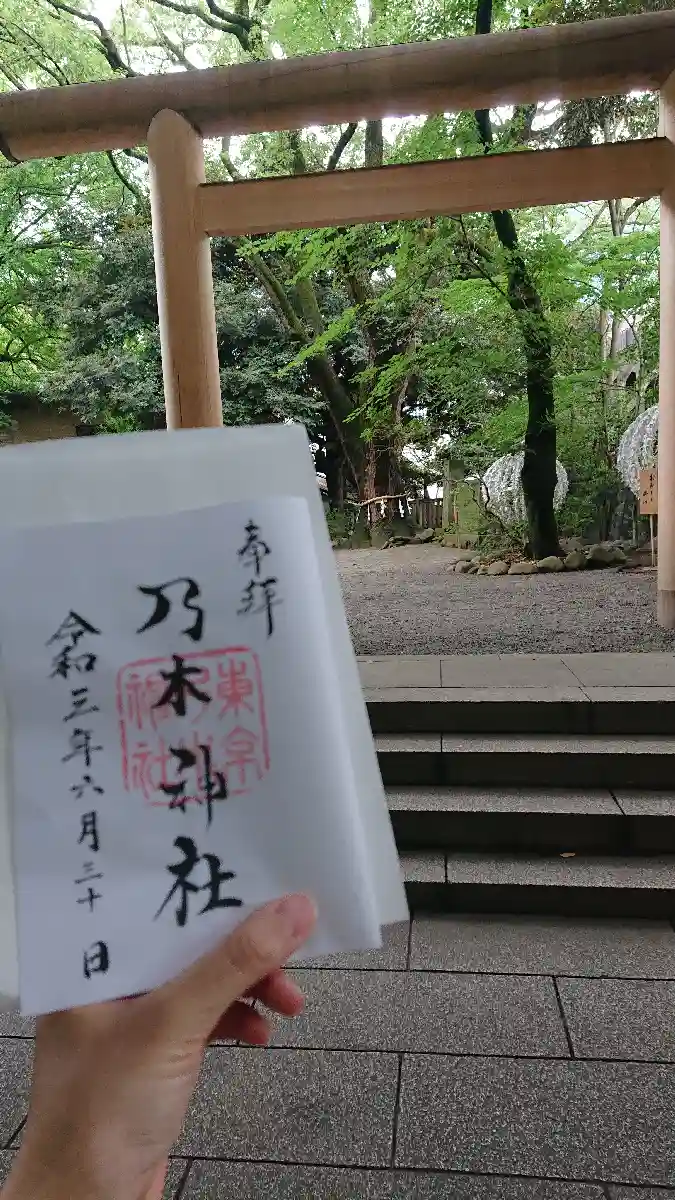 奉拝
乃木神社
東京乃木神社
令和三年六月三十日